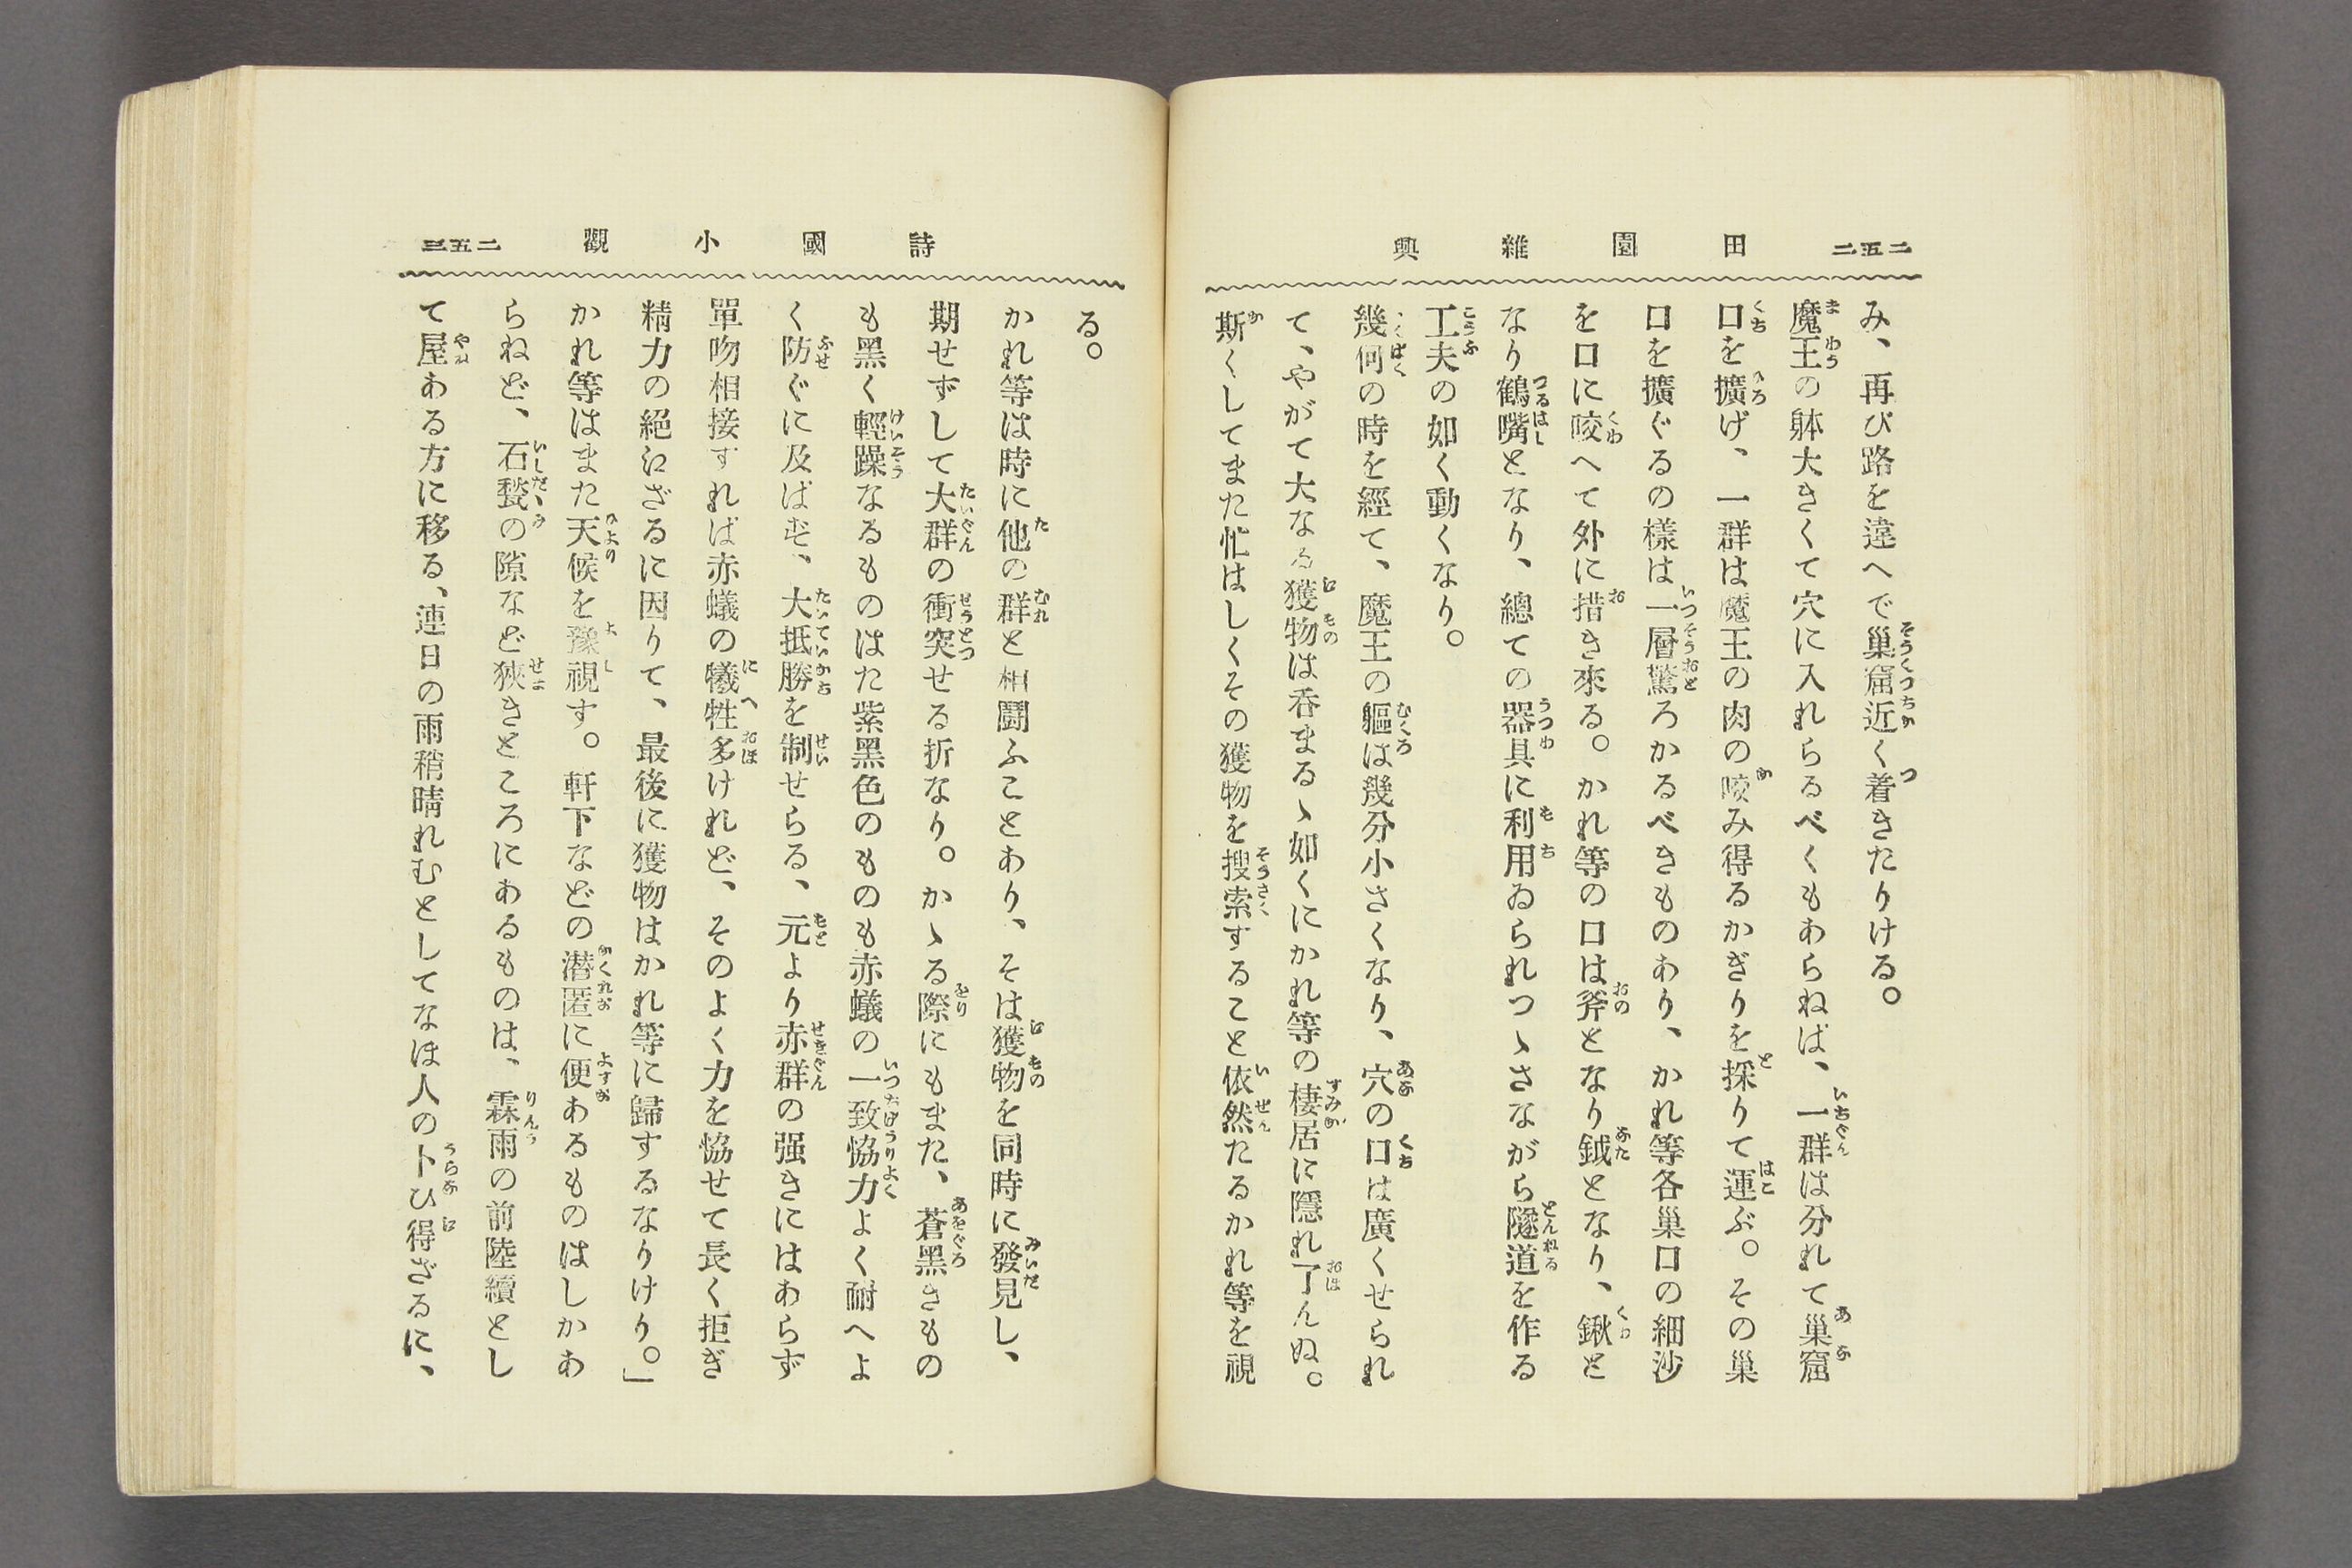 二五二　田園雜興
み、再び路を違へで巢窟近く着きたりける。
魔王の躰大きくて穴に入れらるべくもあらねば、一群は分れて巢窟
口を擴げ、一群は魔王の肉の咬み得るかぎりを採りて運ぶ。その巢
口を擴ぐるの樣は一層驚ろかるべきものあり、かれ等各巢口の細沙
を口に咬へて外に措き來る。かれ等の口は斧となり鉞となり、鍬と
なり鶴嘴となり、總ての器具に利用ゐられつゝさながら隧道を作る
工夫の如く動くなり。
幾何の時を經て、魔王の軀は幾分小さくなり、穴の口は廣くせられ
て、やがて大なる獲物は呑まるゝ如くにかれ等の棲居に隱れ了んぬ。
斯くしてまた忙はしくその獲物を搜索すること依然たるかれ等を視
詩國小觀　二五三
る。
かれ等は時に他の群と相鬪ふことあり、そは獲物を同時に發見し、
期せずして大群の衝突せる折なり。かゝる際にもまた、蒼黑きもの
も黑く輕躁なるものはた紫黑色のものも赤蟻の一致恊力よく耐へよ
く防ぐに及ばず、大抵勝を制せらる、元より赤群の强きにはあらず
單吻相接すれば赤蟻の犧牲多けれど、そのよく力を恊せて長く拒ぎ
精力の絕江ざるに因りて、最後に獲物はかれ等に歸するなりけり。」
かれ等はまた天候を豫視す。軒下などの潛匿に便あるものはしかあ
らねど、石甃の隙など狹きところにあるものは、霖雨の前陸續とし
て屋ある方に移る、連日の雨稍晴れむとしてなほ人の卜ひ得ざるに、